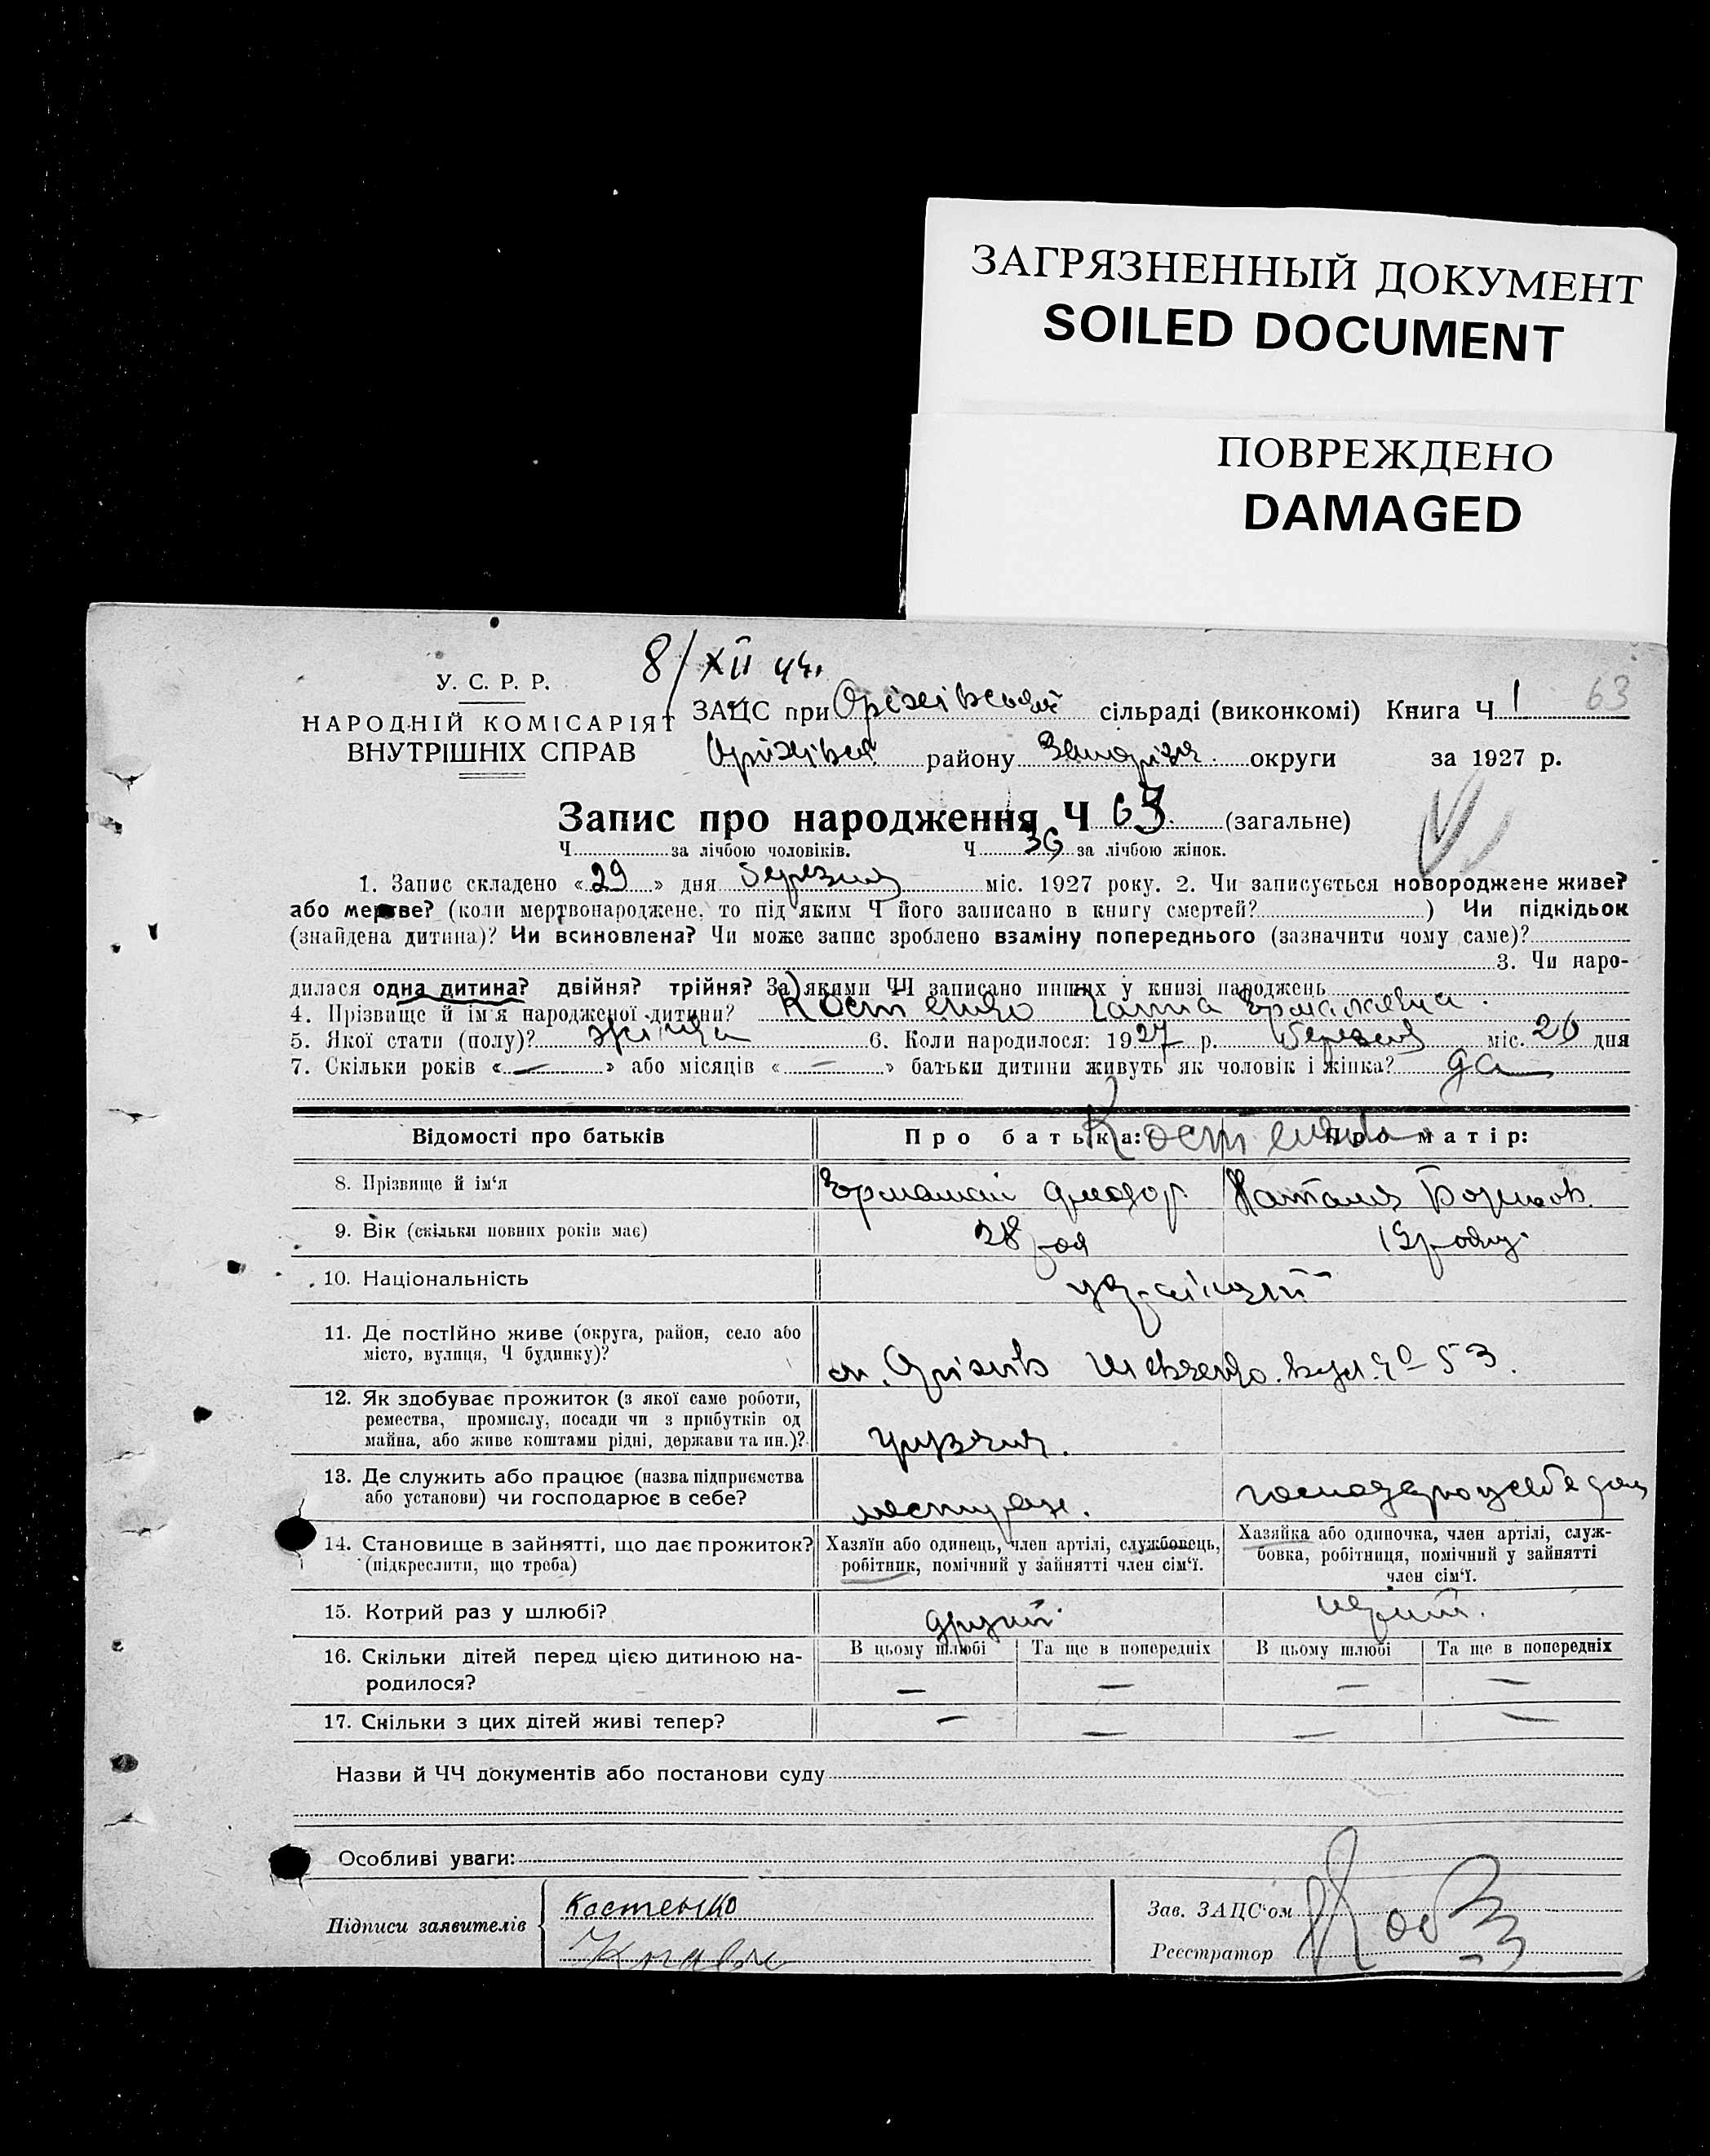 ЗАГРЯЗНЕННЫЙ ДОКУМЕНТ
SOILED DOCUMENT
ПОВРЕЖДЕНО
DAMAGED
8/XII 44.
У. С. Р. Р.
НАРОДНІЙ КОМІСАРІЯТ
ВНУТРІШНІХ СПРАВ
ЗАЦС при Оріхівській сільраді (виконкомі) Книга Ч 1 63
району округи за 1927 р.
Запис про народження Ч (загальне)
Ч за лічбою чоловіків. Ч за лічбою жінок.
1. Запис складено «29» дня березня міс. 1927 року. 2. Чи записується новороджене живе?
або мертве? (коли мертвонароджене, то під яким Ч його записано в книгу смертей? ) Чи підкідьок
(знайдена дитина)? Чи всиновлена? Чи може запис зроблено взаміну попереднього (зазначити чому саме)?
3. Чи наро-
дилася одна дитина? двійня? трійня? За якими ЧЧ записано инших у книзі народжень
4. Прізвище й ім'я народженої дитини? Костенко Ганна
5. Якої стати (полу)? жіноча 6. Коли народилося: 1927 р. березня міс. 26 дня
7. Скільки років « — » або місяців « — » батьки дитини живуть як чоловік і жінка? да
Костенко
Відомості про батьків Про батька: Про матір:
8. Прізвище й ім'я Наталія
9. Вік (скільки повних років має) 28 19
10. Національність
11. Де постійно живе (округа, район, село або
місто, вулиця, Ч будинку)? м. Оріхів Шевченко вул. 53.
12. Як здобуває прожиток (з якої саме роботи,
ремества, промислу, посади чи з прибутків од
майна, або живе коштами рідні, держави та ин.)?
13. Де служить або працює (назва підприємства
або установи) чи господарює в себе?
14. Становище в зайнятті, що дає прожиток?
(підкреслити, що треба)
Хазяїн або одинець, член артілі, службовець,
робітник, помічний у зайнятті член сім'ї.
Хазяйка або одиночка, член артілі, служ-
бовка, робітниця, помічний у зайнятті
член сім'ї.
15. Котрий раз у шлюбі? другий перший.
16. Скільки дітей перед цією дитиною на-
родилося?
В цьому шлюбі Та ще в попередніх В цьому шлюбі Та ще в попередніх
— — — —
17. Скільки з цих дітей живі тепер? — — — —
Назви й ЧЧ документів або постанови суду
Особливі уваги:
Підписи заявителів Костенко
Зав. ЗАЦС'ом
Реєстратор